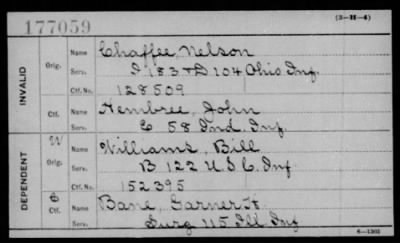 177059
(3—H—4)
INVALID
Orig. Name Chaffee, Nelson
Serv. I 183 + D 104 Ohio Inf.
Ctf. No. 128509
Ctf. Name Hembree, John
Serv. C 58 Ind. Inf.
DEPENDENT
W Orig. Name Williams, Bill
Serv. B 122 U S C. Inf
Ctf. No. 152395
C Ctf. Name Bane, Garner H.
Serv. Surg 115 Ill Inf
6—1301